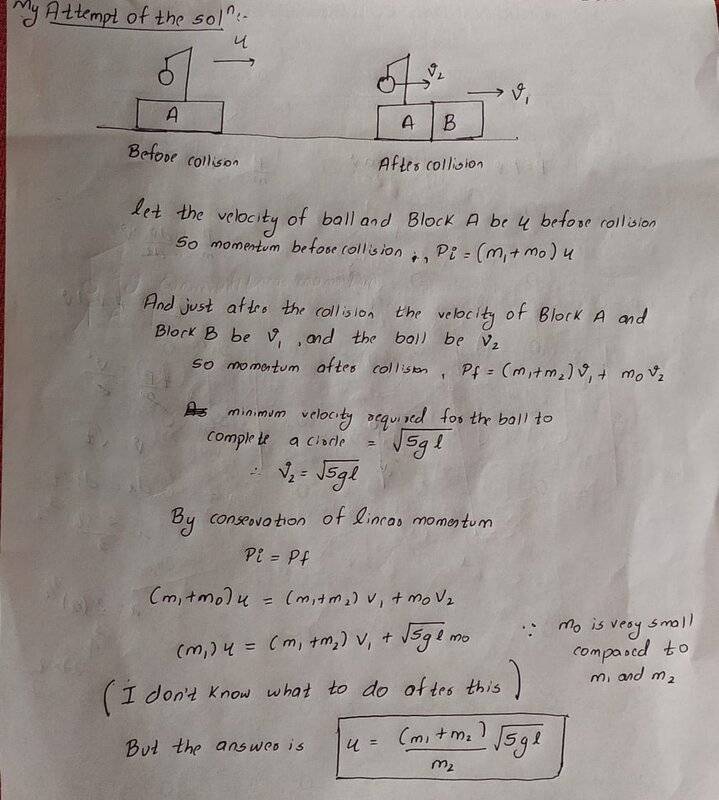 My Attempt of the solⁿ:-
u
A
Before collison
v₂
v₁
A B
After collision
let the velocity of ball and Block A be u before collision
so momentum before collision ;, Pi = (m₁+m₀) u
And just after the collision the velocity of Block A and
Block B be v₁, and the ball be v₂
so momentum after collision, Pf = (m₁+m₂)v₁ + m₀v₂
As minimum velocity required for the ball to
complete a circle = √5gl
∴ v₂ = √5gl
By conservation of linear momentum
Pi = Pf
(m₁+m₀)u = (m₁+m₂) v₁ + m₀v₂
(m₁)u = (m₁+m₂) v₁ + √5gl m₀ ∵ m₀ is very small
compared to
m₁ and m₂
(I don't know what to do after this)
But the answer is u = (m₁+m₂)/m₂ √5gl